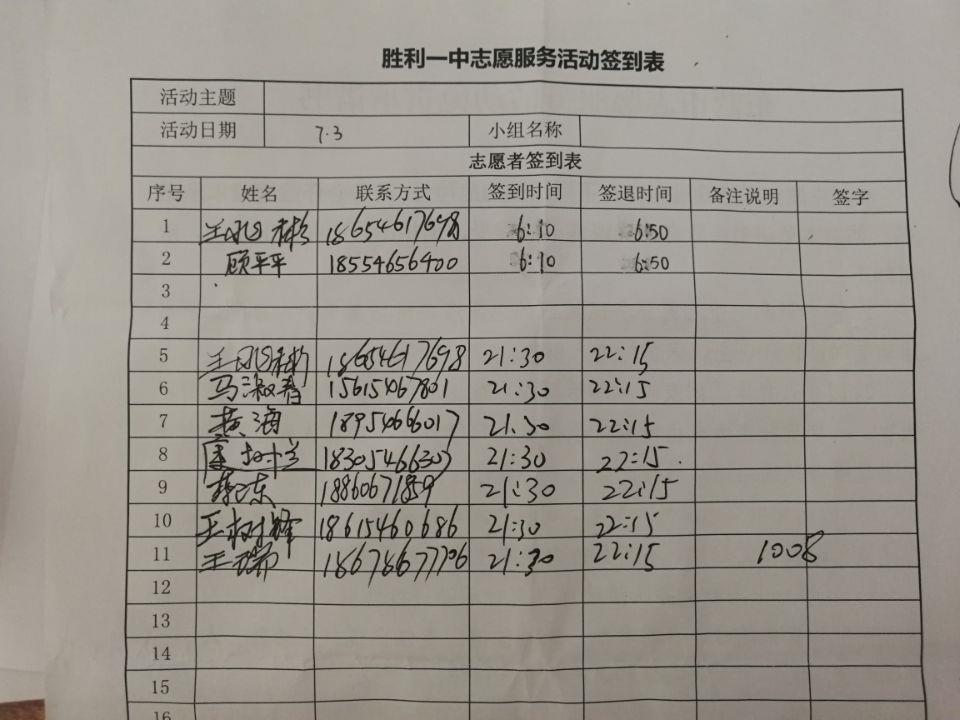 胜利一中志愿服务活动签到表
活动主题
活动日期 7.3 小组名称
志愿者签到表
序号 姓名 联系方式 签到时间 签退时间 备注说明 签字
1 18654617698 6:10 6:50
2 顾平平 18554656400 6:10 6:50
3
4
5 18654617698 21:30 22:15
6 马淑春 15615467801 21:30 22:15
7 黄海 18954666017 21:30 22:15
8 18305466307 21:30 22:15
9 18860671859 21:30 22:15
10 王树峰 18615460686 21:30 22:15
11 王瑞 18678677706 21:30 22:15 1008
12
13
14
15
16